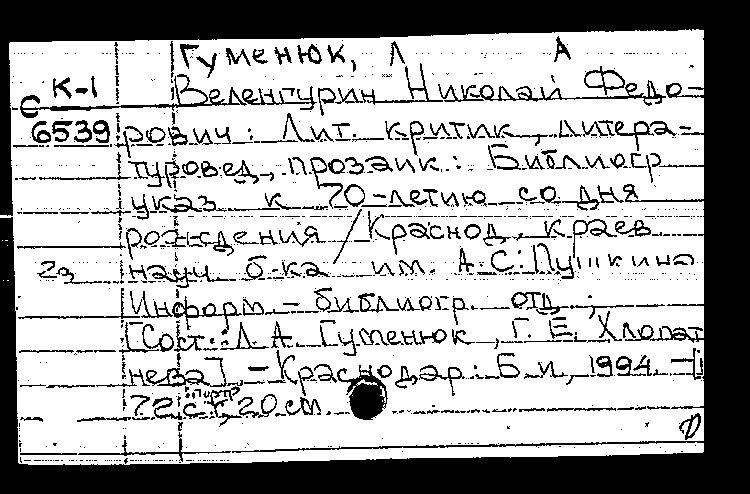 Гуменюк, Л А
К-1
С
6539
Веленгурин Николай Федо-
рович: Лит. критик, литера-
туровед, прозаик: Библиогр
указ к 70-летию со дня
рождения / Краснод. краев.
2э
науч. б-ка им. А.С. Пушкина
Информ.-библиогр. отд.;
[Сост.: Л.А. Гуменюк, Г.Е. Хлопат
нева]. - Краснодар: Б.и, 1994. -[
72 с., портр 20 см.